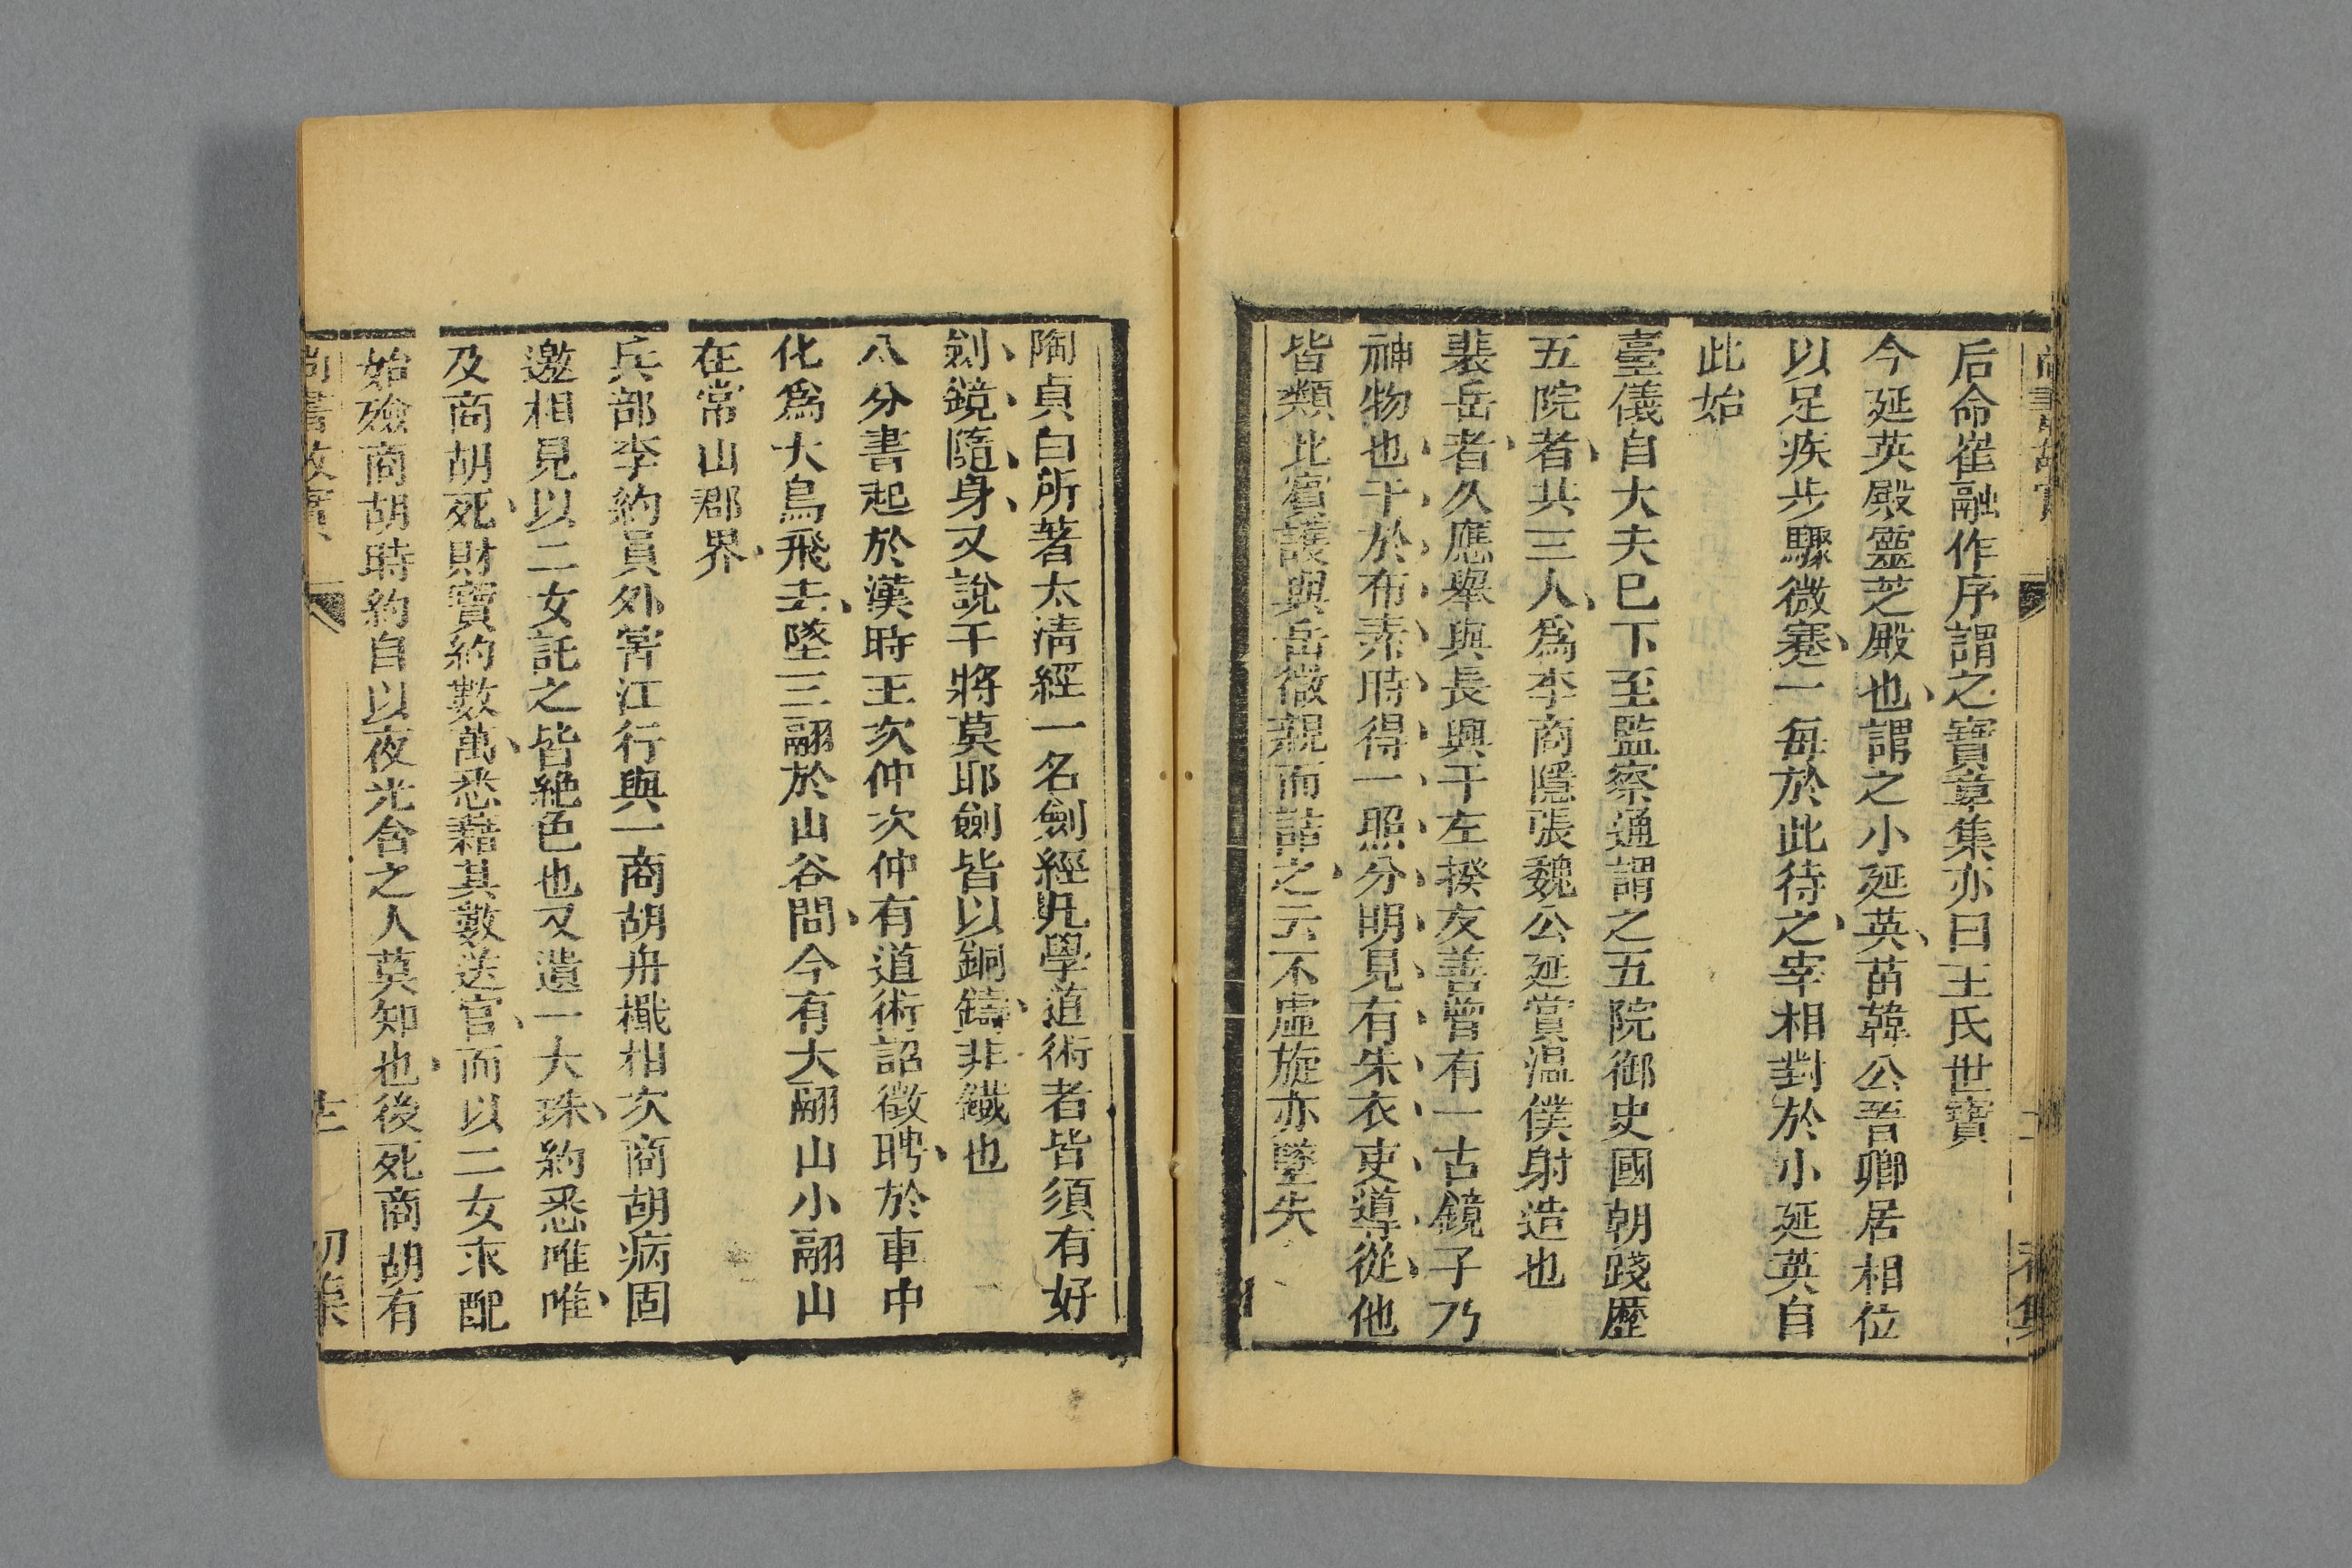 后命崔融作序謂之寶章集亦曰王氏世寶
今延英殿靈芝殿也謂之小延英苗韓公晉卿居相位
以足疾步驟微蹇一每於此待之宰相對於小延英自
此始
臺儀自大夫已下至監察通謂之五院御史國朝踐歷
五院者共三人爲李商隱張魏公延賞温僕射造也
裴岳者久應舉與長興于左揆友善曾有一古鏡子乃
神物也于於布素時得一照分明見有朱衣吏導從他
皆類此賓護與岳微親而詰之云不虛旋亦墜失
陶貞白所著太清經一名劍經凡學道術者皆須有好
劍鏡隨身又說干將莫耶劍皆以銅鑄非鐵也
八分書起於漢時王次仲次仲有道術詔徵聘於車中
化爲大鳥飛去墜三翮於山谷間今有大翮山小翮山
在常山郡界
兵部李約員外嘗江行與一商胡舟檝相次商胡病固
邀相見以二女託之皆絶色也又遺一大珠約悉唯唯
及商胡死財寶約數萬悉籍其數送官而以二女求配
始殮商胡時約自以夜光含之人莫知也後死商胡有
尚書故實
初集